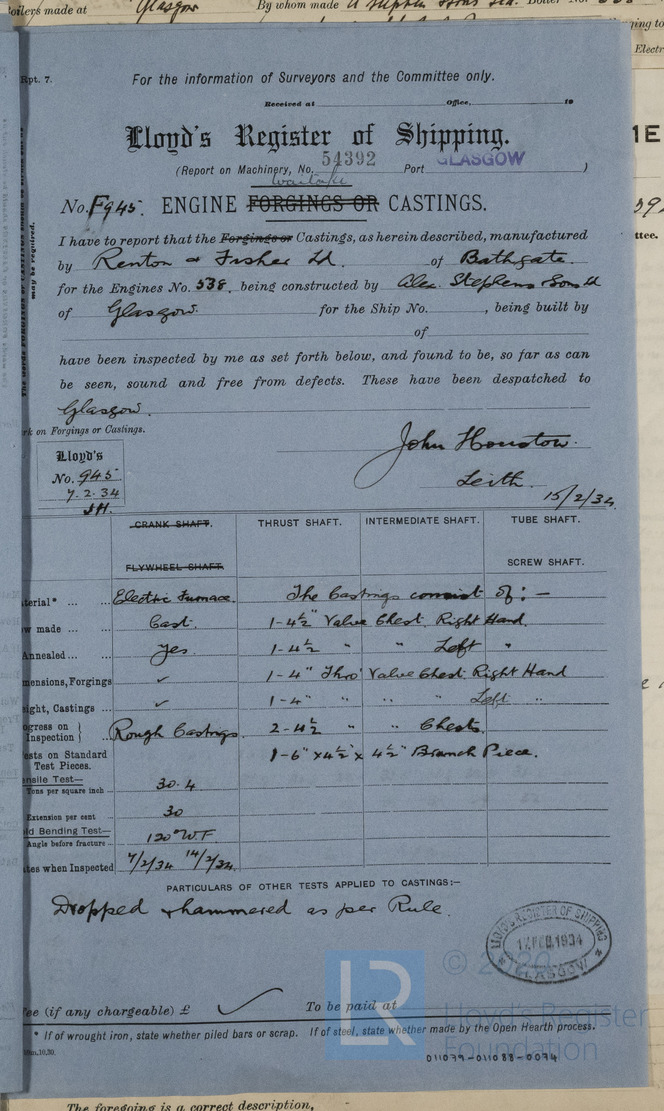 Boilers made at Glasgow By whom made A Stephen Sons Ltd. Boiler No.
Electr
ME
ttee.
Rpt. 7. For the information of Surveyors and the Committee only.
Received at Office, 19
Lloyd's Register of Shipping.
(Report on Machinery, No. 54392 Port GLASGOW )
No. F945. ENGINE FORGINGS OR CASTINGS.
may be required.
I have to report that the Forgings or Castings, as herein described, manufactured
by Renton & Fisher Ld. of Bathgate.
for the Engines No. 538. being constructed by Alex. Stephens Sons Ld
of Glasgow. for the Ship No. , being built by
of
have been inspected by me as set forth below, and found to be, so far as can
be seen, sound and free from defects. These have been despatched to
Glasgow.
rk on Forgings or Castings.
John Houston.
Lloyd's
No. 945
7.2.34
J.H.
Leith.
15/2/34.
CRANK SHAFT. THRUST SHAFT. INTERMEDIATE SHAFT. TUBE SHAFT.
FLYWHEEL SHAFT. SCREW SHAFT.
terial* ... ... Electric Furnace. The Castings consist of:—
w made ... ... Cast. 1-4½" Valve Chest. Right Hand.
Annealed ... ... Yes. 1-4½ " " Left "
mensions, Forgings ✓ 1-4" Thro' Valve Chest Right Hand
ight, Castings ... ✓ 1-4" " " " Left "
ogress on Inspection } ... Rough Castings. 2-4½ " " Chests.
ests on Standard Test Pieces. 1-6" x 4½" x 4½" Branch Piece.
nsile Test—
Tons per square inch 30.4
Extension per cent 30
ld Bending Test—
Angle before fracture 120° W.F
tes when Inspected 7/2/34 14/2/34.
PARTICULARS OF OTHER TESTS APPLIED TO CASTINGS:—
Dropped & hammered as per Rule.
LLOYD'S REGISTER OF SHIPPING
17 FEB. 1934
* GLASGOW *
© 2020
LR
Lloyd's Register
Foundation
ee (if any chargeable) £ ✓ To be paid at
* If of wrought iron, state whether piled bars or scrap. If of steel, state whether made by the Open Hearth process.
011079-011088-0094
The foregoing is a correct description,